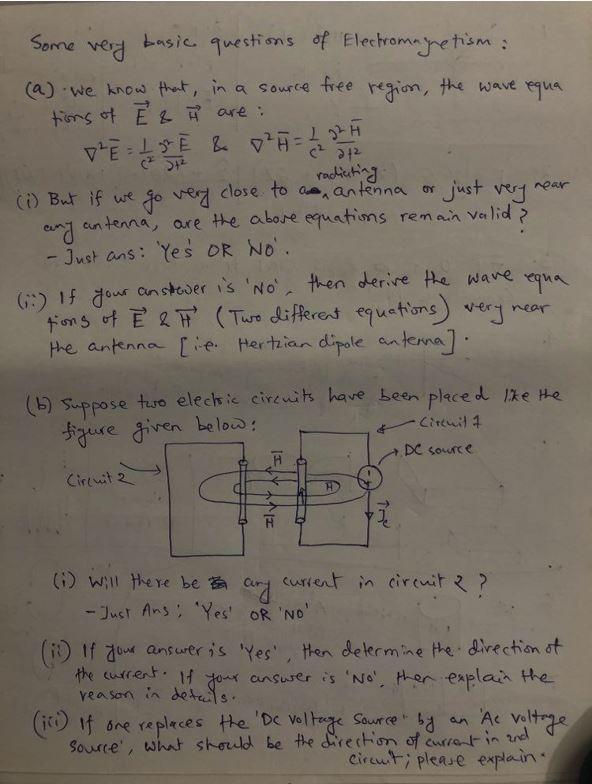 Some very basic questions of Electromagnetism :
(a) · we know that, in a source free region, the wave equa
tions of E⃗ & H⃗ are :
∇²E̅ = 1/c² ∂²E̅/∂t² & ∇²H̅ = 1/c² ∂²H̅/∂t²
radiating
(i) But if we go very close to a antenna or just very near
any antenna, are the above equations remain valid ?
- Just ans: 'Yes' OR 'NO'.
(ii) If your answer is 'NO', then derive the wave equa
tions of E⃗ & H⃗ (Two different equations) very near
the antenna [i.e. Hertzian dipole antenna].
(b) Suppose two electric circuits have been placed like the
figure given below:
Circuit 1
DC source
Circuit 2
H̅
H
H̅
J⃗c
(i) Will there be any current in circuit 2 ?
- Just Ans : 'Yes' OR 'NO'
(ii) If your answer is 'Yes', then determine the direction of
the current. If your answer is 'No', then explain the
reason in details.
(iii) If one replaces the 'DC voltage source' by an 'Ac voltage
source', what should be the direction of current in 2nd
circuit; please explain.